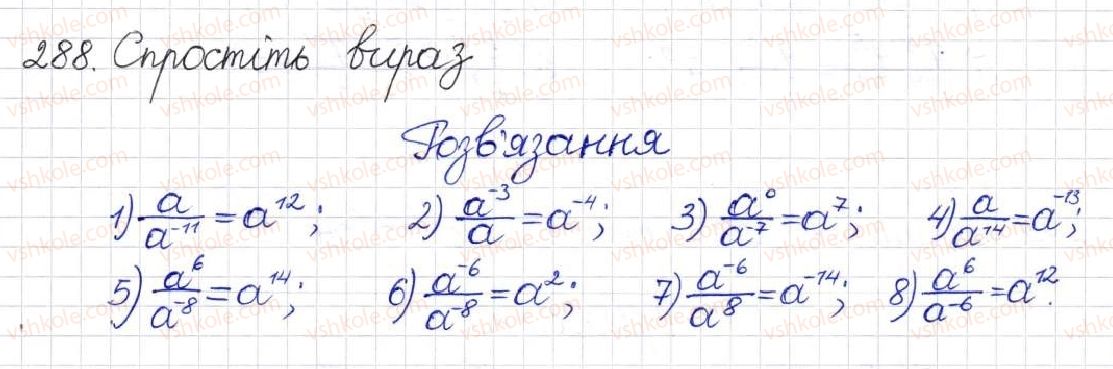 288. Спростіть вираз
Розв'язання
1) a/a⁻¹¹ = a¹²; 2) a⁻³/a = a⁻⁴; 3) a⁰/a⁻⁷ = a⁷; 4) a/a¹⁴ = a⁻¹³;
5) a⁶/a⁻⁸ = a¹⁴; 6) a⁻⁶/a⁻⁸ = a²; 7) a⁻⁶/a⁸ = a⁻¹⁴; 8) a⁶/a⁻⁶ = a¹².
vshkole.com